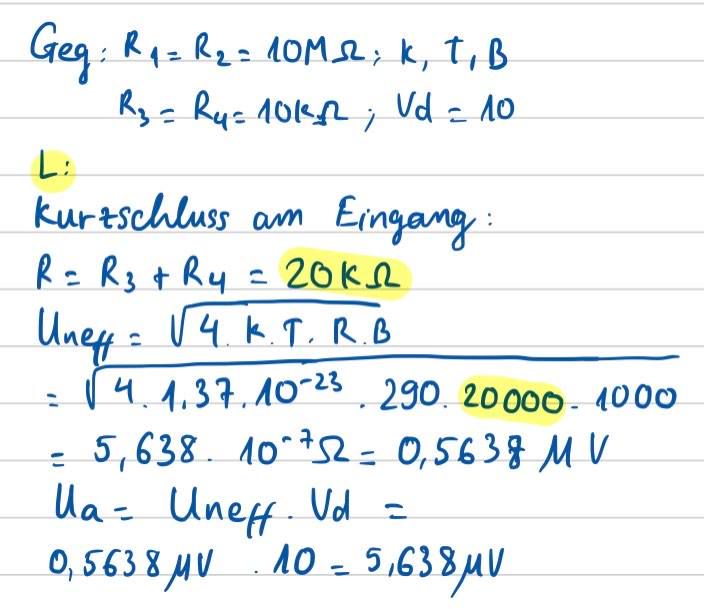 Geg: R₁ = R₂ = 10MΩ; k, T, B
R₃ = R₄ = 10kΩ; Vd = 10
L:
Kurtzschluss am Eingang:
R = R₃ + R₄ = 20kΩ
Uneff = √4. k. T. R. B
= √4. 1,37. 10⁻²³ . 290. 20000. 1000
= 5,638. 10⁻⁷Ω = 0,5638 µV
Ua = Uneff. Vd =
0,5638 µV . 10 = 5,638 µV